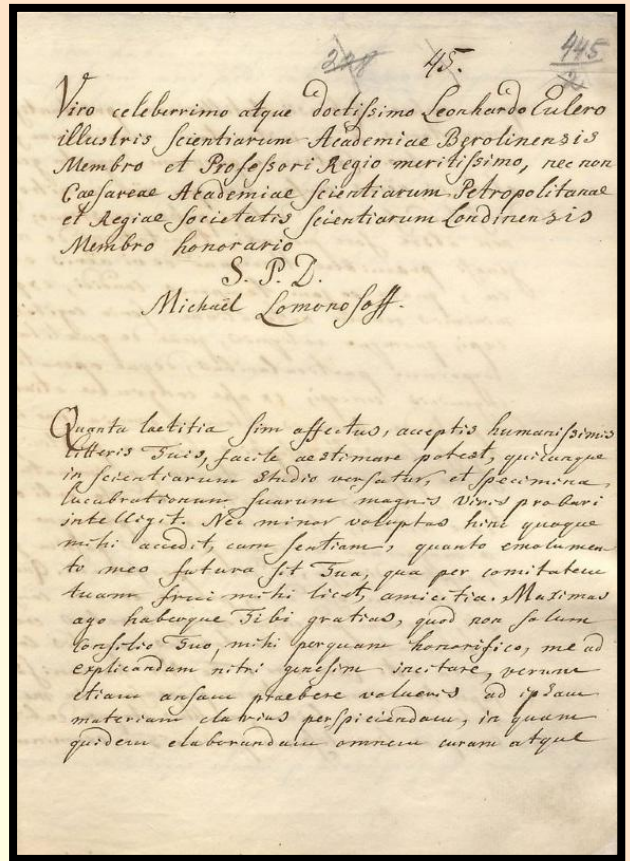 45.
445
Viro celeberrimo atque doctissimo Leonhardo Eulero
illustris Scientiarum Academiae Berolinensis
Membro et Professori Regio meritissimo, nec non
Caesareae Academiae Scientiarum Petropolitanae
et Regiae Societatis Scientiarum Londinensis
Membro honorario
S. P. D.
Michaël Lomonosoff.
Quanta laetitia sim affectus, acceptis humanissimis
litteris Tuis, facile aestimare potest, quicunque
in scientiarum studio versatur, et specimina
lucubrationum suarum magnis viris probari
intelligit. Nec minor voluptas hinc quoque
mihi accedit, cum sentiam, quanto emolumen
to meo futura sit Tua, qua per comitatem
tuam frui mihi licet, amicitia. Maximas
ago habeoque Tibi gratias, quod non solum
Consilio Tuo, mihi perquam honorifico, me ad
explicandam nitri genesim incitare, verum
etiam ansam praebere volueris ad ipsam
materiam clarius perspiciendam, in quam
quidem elaborandam omnem curam atque